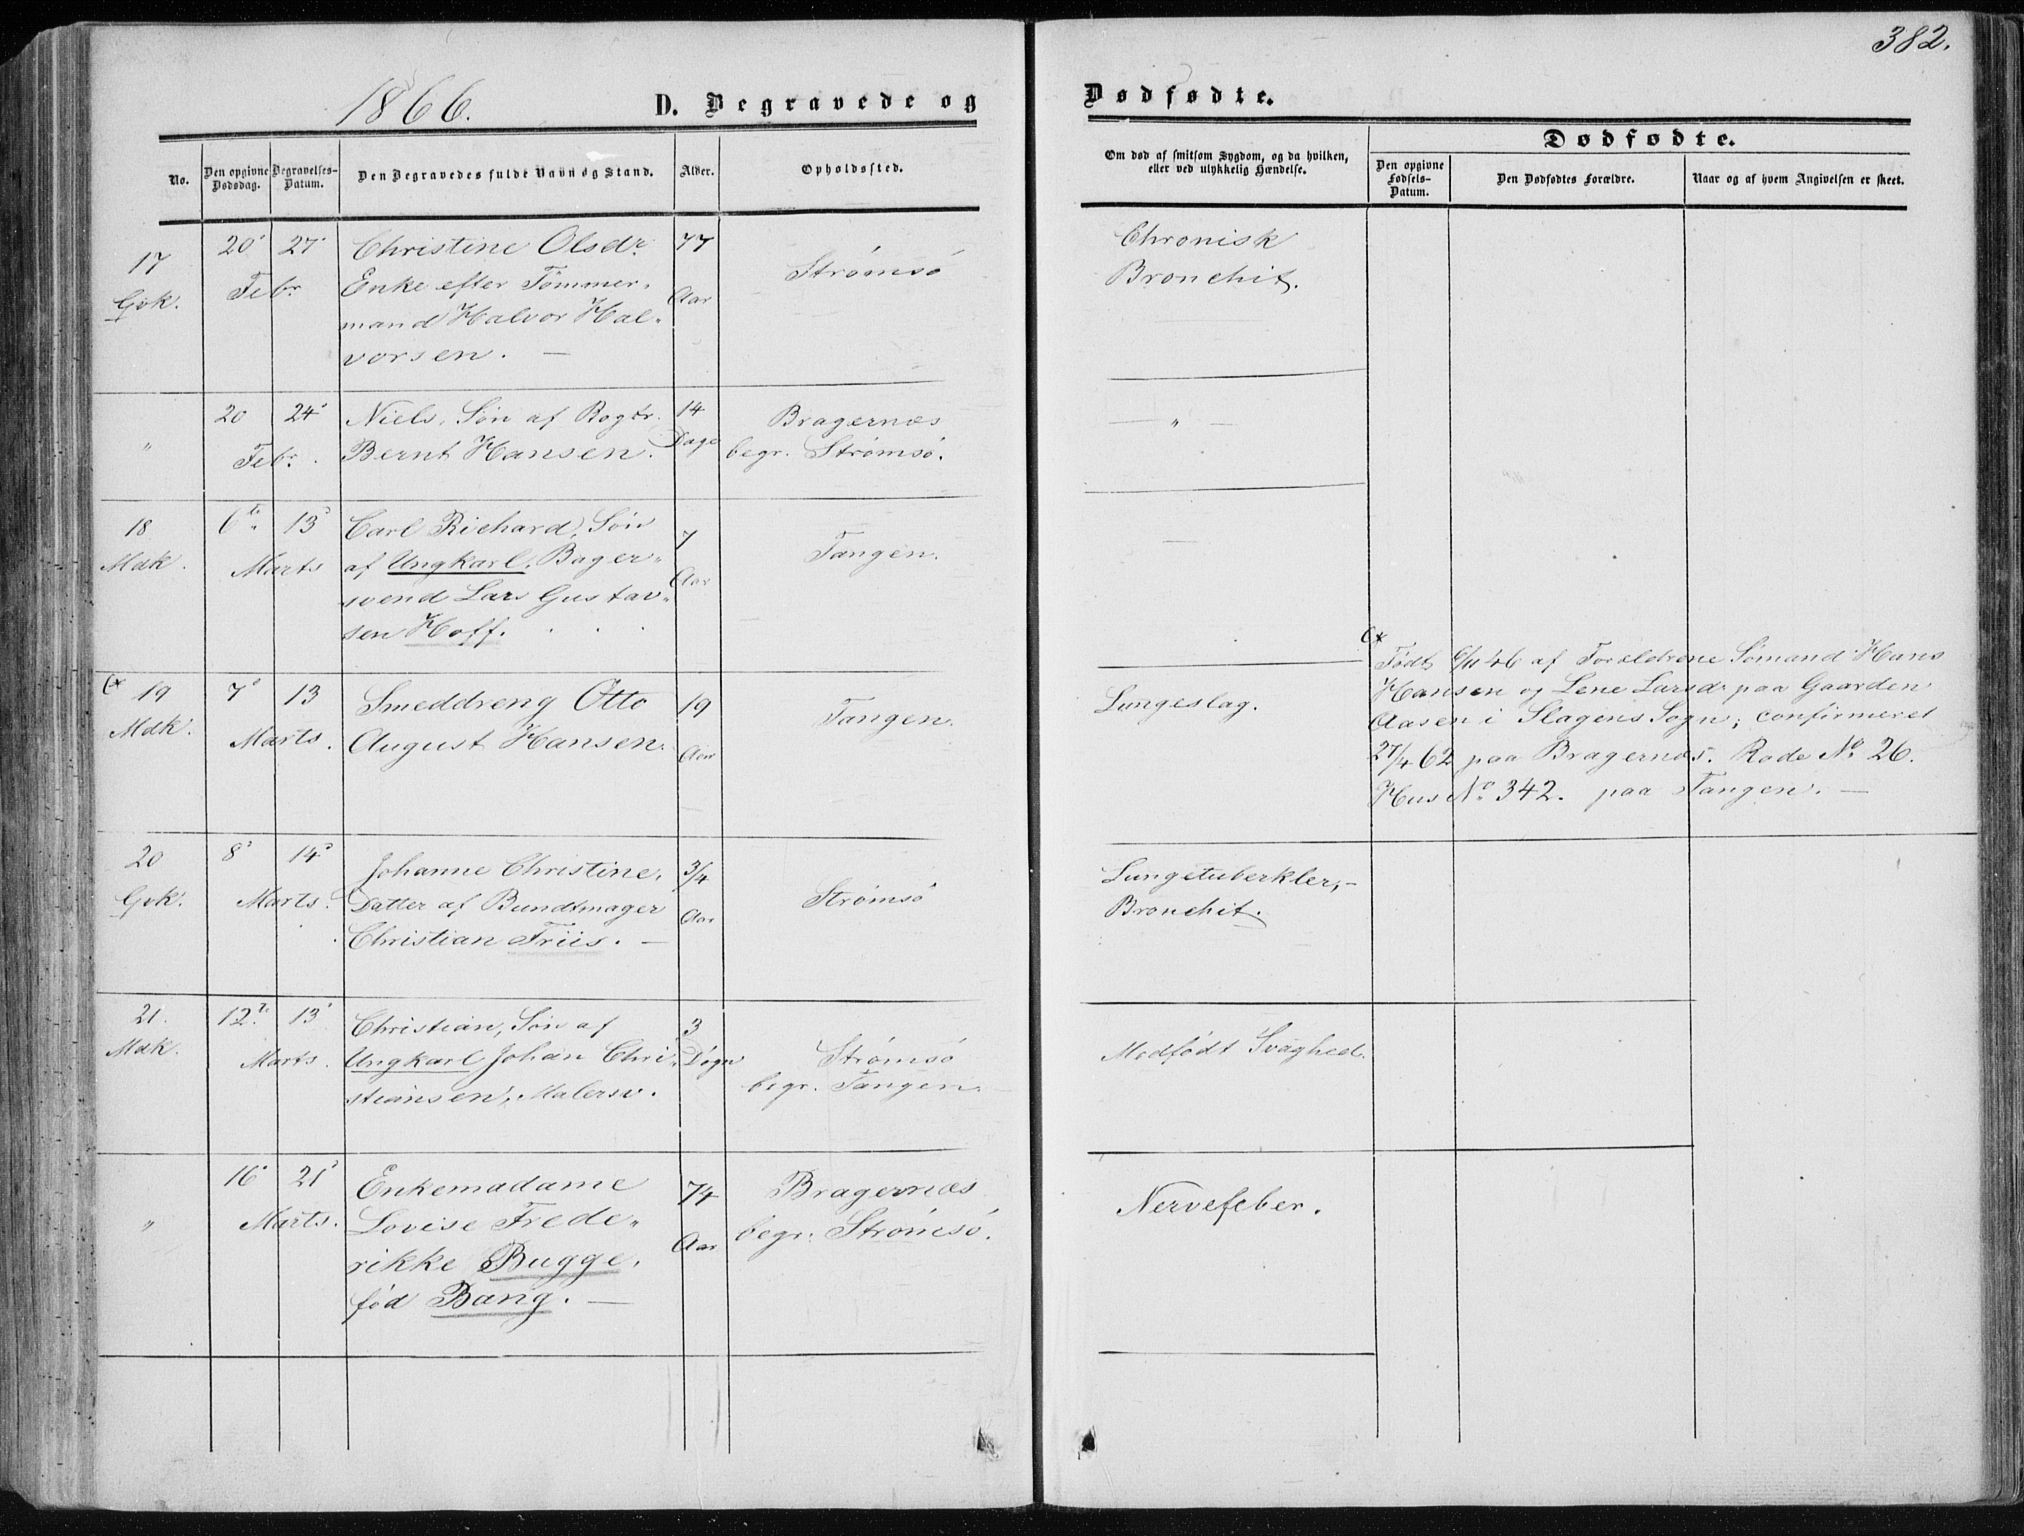 382.
1866.
D. Begravede og
Dødfødte.
No.
Den opgivne Dødsdag.
Begravelses-Datum.
Den Begravedes fulde Navn og Stand.
Alder.
Opholdssted.
Om død af smitsom Sygdom, og da hvilken, eller ved ulykkelig Hændelse.
Dødfødte.
Den opgivne Fødsels-Datum.
Den Dødfødtes Forældre.
Naar og af hvem Angivelsen er skeet.
17 20 27 Christine Olsdr. 77 Strømsø Chronisk
Gvk. Febr. Enke efter Tømmer- Aar Bronchit.
mand Halvor Hal-
vorsen. —
" 20 24 Niels, Søn af Bogtr. 14 Bragernæs — " —
Febr. Bernt Hansen. Dage begr. Strømsø.
18 6te 13 Carl Richard, Søn 7 Tangen. —
Mdk. Marts af Ungkarl, Bager- Aar
svend Lars Gustav-
sen Hoff.
19 7 13 Smeddreng Otto 19 Tangen. Lungeslag.
Mdk. Marts. August Hansen. Aar
Født 6/11 46 af Forældrene Sømand Hans
Hansen og Lene Larsdr paa Gaarden
Aasen i Slagens Sogn; confirmeret
27/4 62 paa Bragernæs. Rode No 26.
Hus No 342. paa Tangen. —
20 8 14 Johanne Christine, 3/4 Strømsø Lungetuberkler, -
Gvk. Marts. Datter af Bundtmager Aar Bronchit.
Christian Friis. —
21. 12te 13 Christian, Søn af 3 Strømsø Medfødt Svaghed.
Mdk. Marts. Ungkarl Johan Chri- Døgn begr. Tangen.
stiansen, Malersv.
" 16 21 Enkemadame 74 Bragernæs Nervefeber.
Marts. Lovise Frede- Aar begr. Strømsø.
rikke Bugge,
fød Bang. —